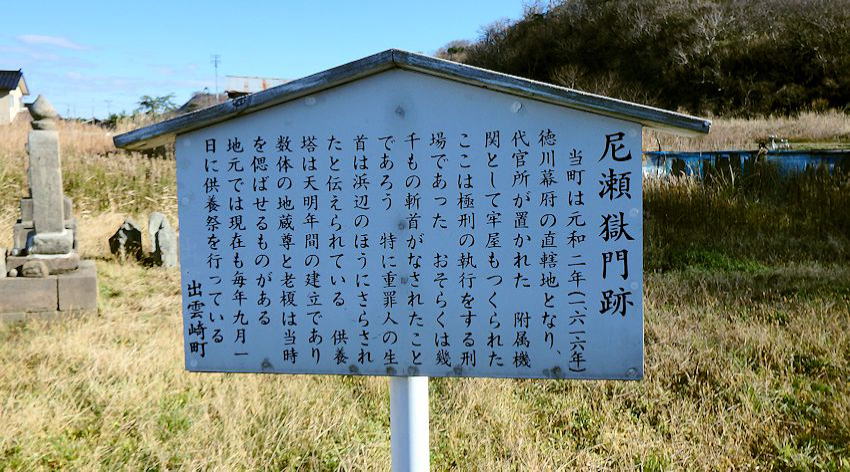 尼瀬獄門跡
当町は元和二年(一六一六年)
徳川幕府の直轄地となり、
代官所が置かれた 附属機
関として牢屋もつくられた
ここは極刑の執行をする刑
場であった おそらくは幾
千もの斬首がなされたこと
であろう 特に重罪人の生
首は浜辺のほうにさらされ
たと伝えられている 供養
塔は天明年間の建立であり
数体の地蔵尊と老榎は当時
を偲ばせるものがある
地元では現在も毎年九月一
日に供養祭を行っている
出雲崎町